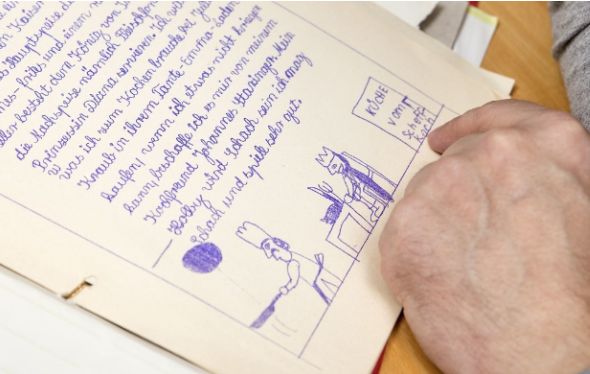 Kaiser
Hauptspeise
und einem
besteht dem König von
die Nachspeise nämlich
Prinzessin Diana servieren. Ich
was ich zum Kochen brauche bei
Knaub in ihrem Tante-Emma-Laden
kaufen/ wenn ich etwas nicht kriegen
kann beschaffe ich es mir von meinem
Kochfreund Johannes Mein
Hobby wird schach sein ich mag
Schach und spiele sehr gut.
KÜCHE
VOM
Koch